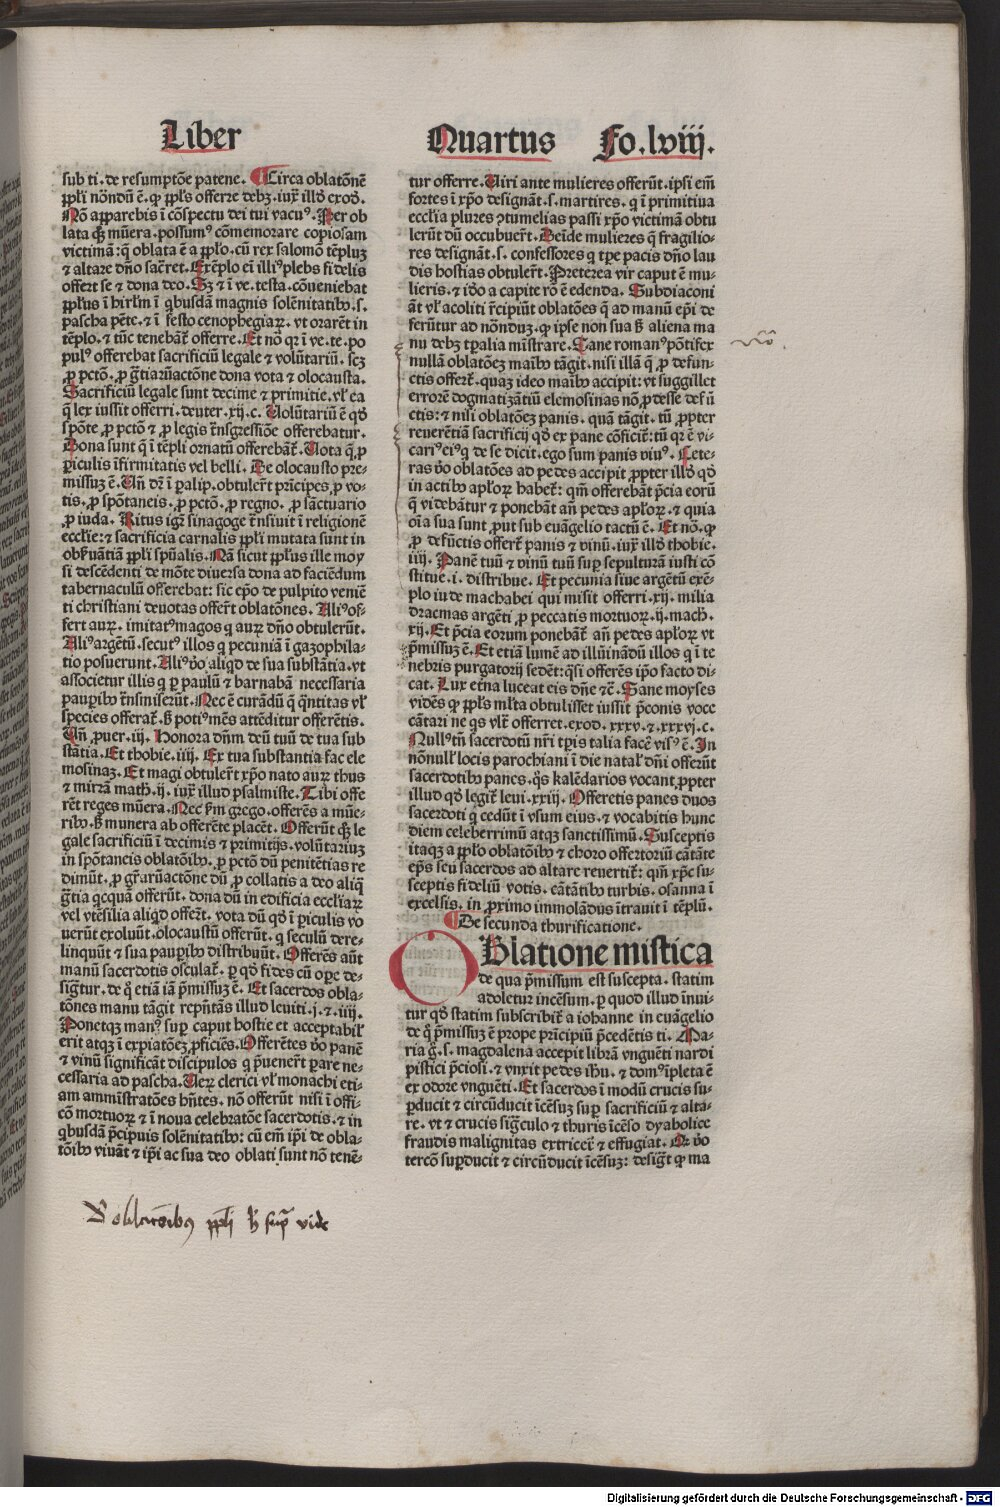 Liber
Quartus Fo.lviij.
sub ti. de resumptōe patene. Circa oblatōnē
ppl'i nōndū ē. ꝙ ppl's offerre debꝫ. iuxͭ illđ exođ.
Nō apparebis ī cōspectu dei tui vacuꝰ. Per ob
lata qꝫ mūera. possumꝰ cōmemorare copiosam
victimā: q̄ oblata ē a ppl'o. cū rex salomō tēpluꝫ
⁊ altare dn̄o sac̄ret. Exēplo ei illiꝰ plebs fidelis
offert se ⁊ dona deo. Sꝫ ⁊ ī ve. testa. cōueniebat
ppl'us ī hirl'm ī qbusdā magnis solēnitatibꝰ. s.
pascha pēte. ⁊ ī festo cenophegiaꝝ. vt orarēt in
tēplo. ⁊ tūc tenebāt̄ offerre. Et nō qꝛ ī ve. te. po
pulꝰ offerebat sacrificiū legale ⁊ volūtariū. scꝫ
ꝓ pctō. ꝓ gr̄tiaꝝactōne dona vota ⁊ olocausta.
Sacrificiū legale sunt decime ⁊ primitie. vl' ea
q̄ lex iussit offerri. deuter. xij. c. Uolūtariū ē qđ
spōte. ꝓ pctō ⁊ ꝓ legis trāsgressiōe offerebatur.
Dona sunt q̄ ī tēpli ornatū offerebāt̄. Uota q̄. ꝓ
ꝑiculis īfirmitatis vel belli. De olocausto pre-
missuꝫ ē. Uñ dr̄ ī palip. obtulerūt prīcipes ꝓ vo-
tis. ꝓ spōtaneis. ꝓ pctō. ꝓ regno. ꝓ sāctuario
ꝓ iuda. Ritus igr̄ sinagoge trāsiuit ī religionē
eccl'ie: ⁊ sacrificia carnalis ppl'i mutata sunt in
obẜuātiā ppl'i spūalis. Nā sicut ppl'us ille moy
si descēdenti de mōte diuersa dona ad faciēdum
tabernaculū offerebat: sic ep̄o de pulpito veniē
ti christiani deuotas offerūt oblatōnes. Aliꝰ of-
fert auꝝ. imitatꝰ magos q auꝝ dn̄o obtulerūt.
Aliꝰ argētū. secutꝰ illos q pecuniā ī gazophila-
tio posuerunt. Aliꝰ v̄o aliqđ de sua substātia. vt
associetur illis q ꝑ paulū ⁊ barnabā necessaria
pauꝑibꝰ trāsmiserūt. Nec ē curādū q̄ q̄ntitas vl'
species offerat̄. ẜ potiꝰ mēs attēditur offerētis.
Uñ ꝓuer. iij. Honora dn̄m deū tuū de tua sub
stātia. Et thobie. iiij. Ex tua substantia fac ele
mosinaꝫ. Et magi obtulerūt xp̄o nato auꝝ thus
⁊ mirrā math. ij. iuxͭ illud psalmiste. Tibi offe
rēt reges mūera. Nec ẜm grego. offerēs a mūe-
ribꝰ. ẜ munera ab offerēte placēt. Offerūt qꝫ le
gale sacrificiū ī decimis ⁊ primitijs. volūtariuꝫ
in spōtaneis oblatōibꝰ. ꝓ pctō dū penitētias re
dimūt. ꝓ gr̄aꝝactōne dū ꝓ collatis a deo aliq̄
gr̄tia qcquā offerūt. dona dū in edificia eccl'iaꝝ
vel vtēsilia aliqđ offerūt. vota dū qđ ī ꝑiculis vo
uerūt exoluūt. olocaustū offerūt. q seculū dere-
linquūt ⁊ sua pauꝑibꝰ distribuūt. Offerēs aūt
manū sacerdotis osculat̄. ꝑ qđ fides cū oꝑe de-
sigtur. de q̊ etiā iā p̄missuꝫ ē. Et sacerdos obla-
tōnes manu tāgit rep̄sentās illud leuiti. j. ⁊. iiij.
Ponetqꝫ manꝰ suꝑ caput hostie et acceptabil'
erit atqꝫ ī expiatōeꝫ ꝓficiēs. Offerētes v̄o panē
⁊ vinū significāt discipulos q p̄uenerūt parare ne-
cessaria ad pascha. Ueꝝ clerici vl' monachi eti-
am amministratōes hn̄tes. nō offerūt nisi ī offi-
cō mortuoꝝ ⁊ ī noua celebratōe sacerdotis. ⁊ in
qbusdā p̄cipuis solēnitatibꝰ: cū em̄ ip̄i de obla-
tōibꝰ viuāt ⁊ ip̄i ac sua deo oblati sunt nō tenē-
tur offerre. Uiri ante mulieres offerūt. ipsi em̄
fortes ī xp̄o designāt. s. martires. q ī primitiua
eccl'ia plures ꝯtumelias passi xp̄o victimā obtu
lerūt dū occubuerūt. Deīde mulieres q̄ fragilio-
res designāt. s. confessores q tp̄e pacis dn̄o lau
dis hostias obtulerūt. Preterea vir caput ē mu-
lieris. ⁊ iō a capite rō ē edenda. Subdiaconi
aūt vl' acoliti recipiūt oblatōes q̄ ad manū ep̄i de
ferūtur ad nōnduꝫ. ꝙ ipse non sua ẜ aliena ma
nu debꝫ tꝑalia mīstrare. Sane romanꝰ pōtifex
nullā oblatōeꝫ maībꝰ tāgit. nisi illā q̄ ꝓ defun-
ctis offert̄. quaꝫ ideo maībꝰ accipit: vt suggillet
errorē dogmatizātiū elemosinas nō ꝓdesse defū
ctis: ⁊ nisi oblatōeꝫ panis. quā tāgit. tū ꝓpter
reuerētiā sacrificij qđ ex pane cōficit̄: tū qꝛ ē vi-
cariꝰ eiꝰ q de se dicit. ego sum panis viuꝰ. Cete-
ras v̄o oblatōes ad pedes accipit ꝓpter illđ qđ
in actibꝰ apl'oꝝ habet̄: qm̄ offerebāt p̄cia eorū
q̄ videbātur ⁊ ponebāt añ pedes apl'oꝝ. ⁊ quia
oīa sua sunt ꝓut sub euāgelio tactū ē. Et nō. ꝙ
ꝓ defūctis offert̄ panis ⁊ vinū. iuxͭ illđ thobie.
iiij. Panē tuū ⁊ vinū tuū suꝑ sepulturā iusti cō
stitue. i. distribue. Et pecunia siue argētū exē-
plo iude machabei qui misit offerri. xij. milia
dracmas argēti ꝓ peccatis mortuoꝝ. ij. mach̄.
xij. Et p̄cia eorum ponebāt̄ añ pedes apl'oꝝ vt
p̄missuꝫ ē. Et etiā lumē ad illūinādū illos q ī te
nebris purgatorij sedēt: qsi offerēs ip̄o facto di-
cat. Lux et̄na luceat eis dn̄e ⁊c̄. Sane moyses
vidēs ꝙ ppl's ml'ta obtulisset iussit p̄conis voce
cātari ne qs vlt̄ offerret. exod. xxxv. ⁊. xxxvj. c.
Nullꝰ tn̄ sacerdotū nr̄i tꝑis talia facē visꝰ ē. In
nōnull' locis parochiani ī die natal' dn̄i offerūt
sacerdotibꝰ panes. qs kalēdarios vocant ꝓpter
illud qđ legit̄ leui. xxiij. Offeretis panes duos
sacerdoti q̄ cedūt ī vsum eius. ⁊ vocabitis hunc
diem celeberrimū atqꝫ sanctissimū. Susceptis
itaqꝫ a ppl'o oblatōibꝰ ⁊ choro offertoriū cātāte
ep̄s seu sacerdos ad altare reuertit̄: qm̄ xp̄c su-
sceptis fideliū votis. cātātibꝰ turbis. osanna ī
excelsis. in ꝓximo immolādus ītrauit ī tēplū.
De secunda thurificatione.
OBlatione mistica
de qua p̄missum est suscepta. statim
adoletur incēsum. ꝑ quod illud īnui-
tur qđ statim subscribit̄ a iohanne in euāgelio
de q̊ p̄missuꝫ ē prope prīcipiū p̄cedētis ti. Ma-
ria g̊. s. magdalena accepit librā vnguēti nardi
pistici p̄ciosi. ⁊ vnxit pedes ihū. ⁊ domꝰ īpleta ē
ex odore vnguēti. Et sacerdos ī modū crucis su-
ꝑducit ⁊ circūducit īcēsuꝫ suꝑ sacrificiū ⁊ alta-
re. vt ⁊ crucis sigculo ⁊ thuris īcēso dyabolice
fraudis malignitas extricet̄ ⁊ effugiat. Qꝛ v̄o
tercō suꝑducit ⁊ circūducit īcēsuꝫ: desigt ꝙ ma
oblacōibus ppl'i h̄ supͣ vide
Digitalisierung gefördert durch die Deutsche Forschungsgemeinschaft - DFG